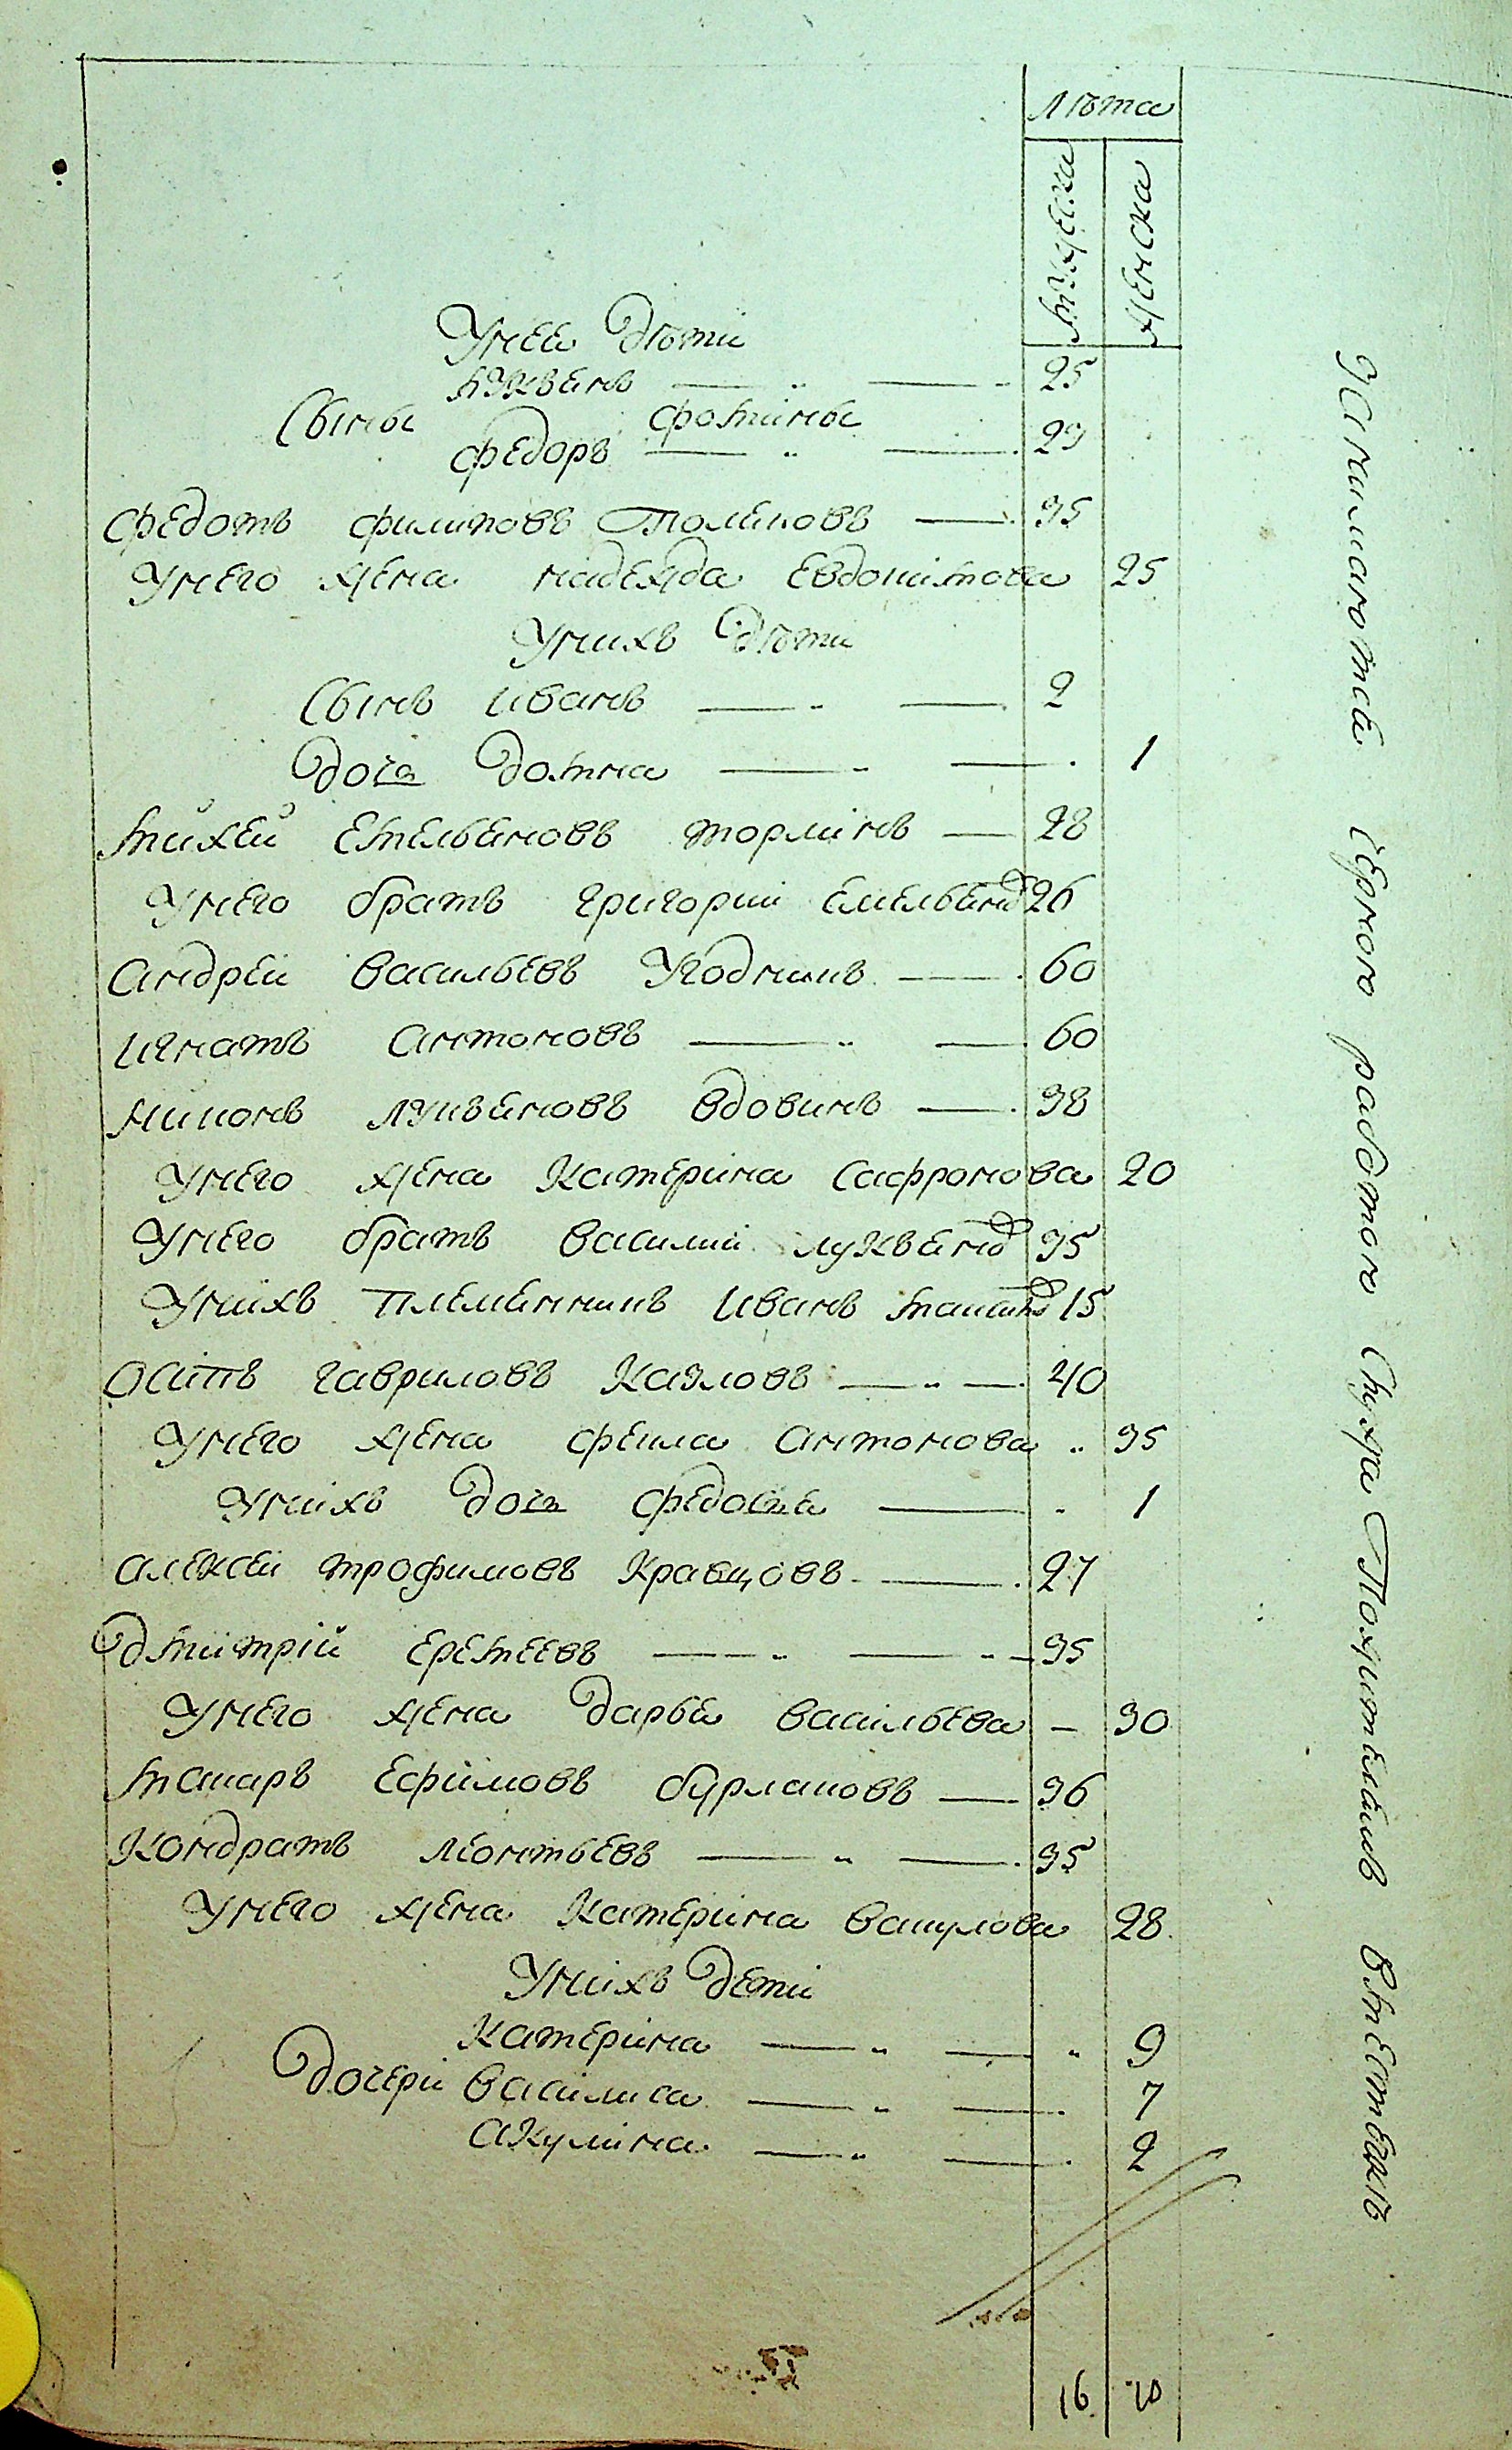 Лѣта
мужеска
женска
Унеа дѣти
лукьянъ 25
Сыны фомины
федоръ 23
федотъ филиповъ Поляковъ 35
Унего жена надежда Евдокимова 25
Унихъ дѣти
Сынъ иванъ 2
дочь домна 1
михей Емельяновъ торлинъ 28
Унего братъ григорий Емельянов 26
андрей васильевъ Угодникъ 60
игнатъ антоновъ 60
никонъ лукьяновъ вдовинъ 38
Унего жена Катерина Сафронова 20
Унего братъ василий лукьянов 35
Унихъ племянникъ иванъ 15
осипъ гавриловъ Казловъ 40
Унего жена фекла антонова 35
Унихъ дочь федосья 1
алексей трофимовъ Кравцовъ 27
дмитрий еремеевъ 35
Унего жена дарья васильева 30
макаръ Ефимовъ бурлаковъ 36
Кондратъ леонтьевъ 35
Унего жена Катерина вакулова 28
Унихъ дети
Катерина 9
дочери василиса 7
акулина 2
16 10